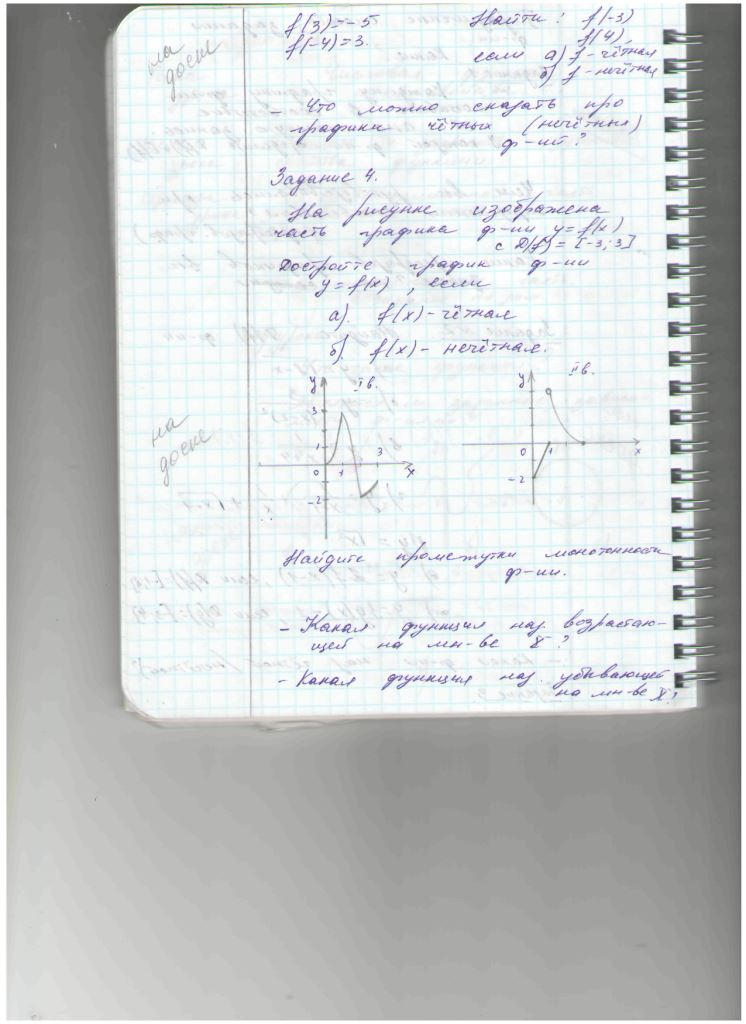 на
доске
f(3) = -5 Найти: f(-3)
f(-4) = 3. f(4),
если а) f - чётная
б) f - нечётная
- Что можно сказать про
графики чётных (нечётных)
ф-ий?
Задание 4.
На рисунке изображена
часть графика ф-ии y = f(x)
с D(f) = [-3; 3]
Достройте график ф-ии
y = f(x), если
а). f(x) - чётная
б). f(x) - нечётная.
на
доске
y
Iв.
3
1
0
1
3
x
-2
y
IIв.
0
1
x
-2
Найдите промежутки монотонности
ф-ии.
- Какая функция наз. возрастаю-
щей на мн-ве X?
- Какая функция наз. убывающей
на мн-ве X?